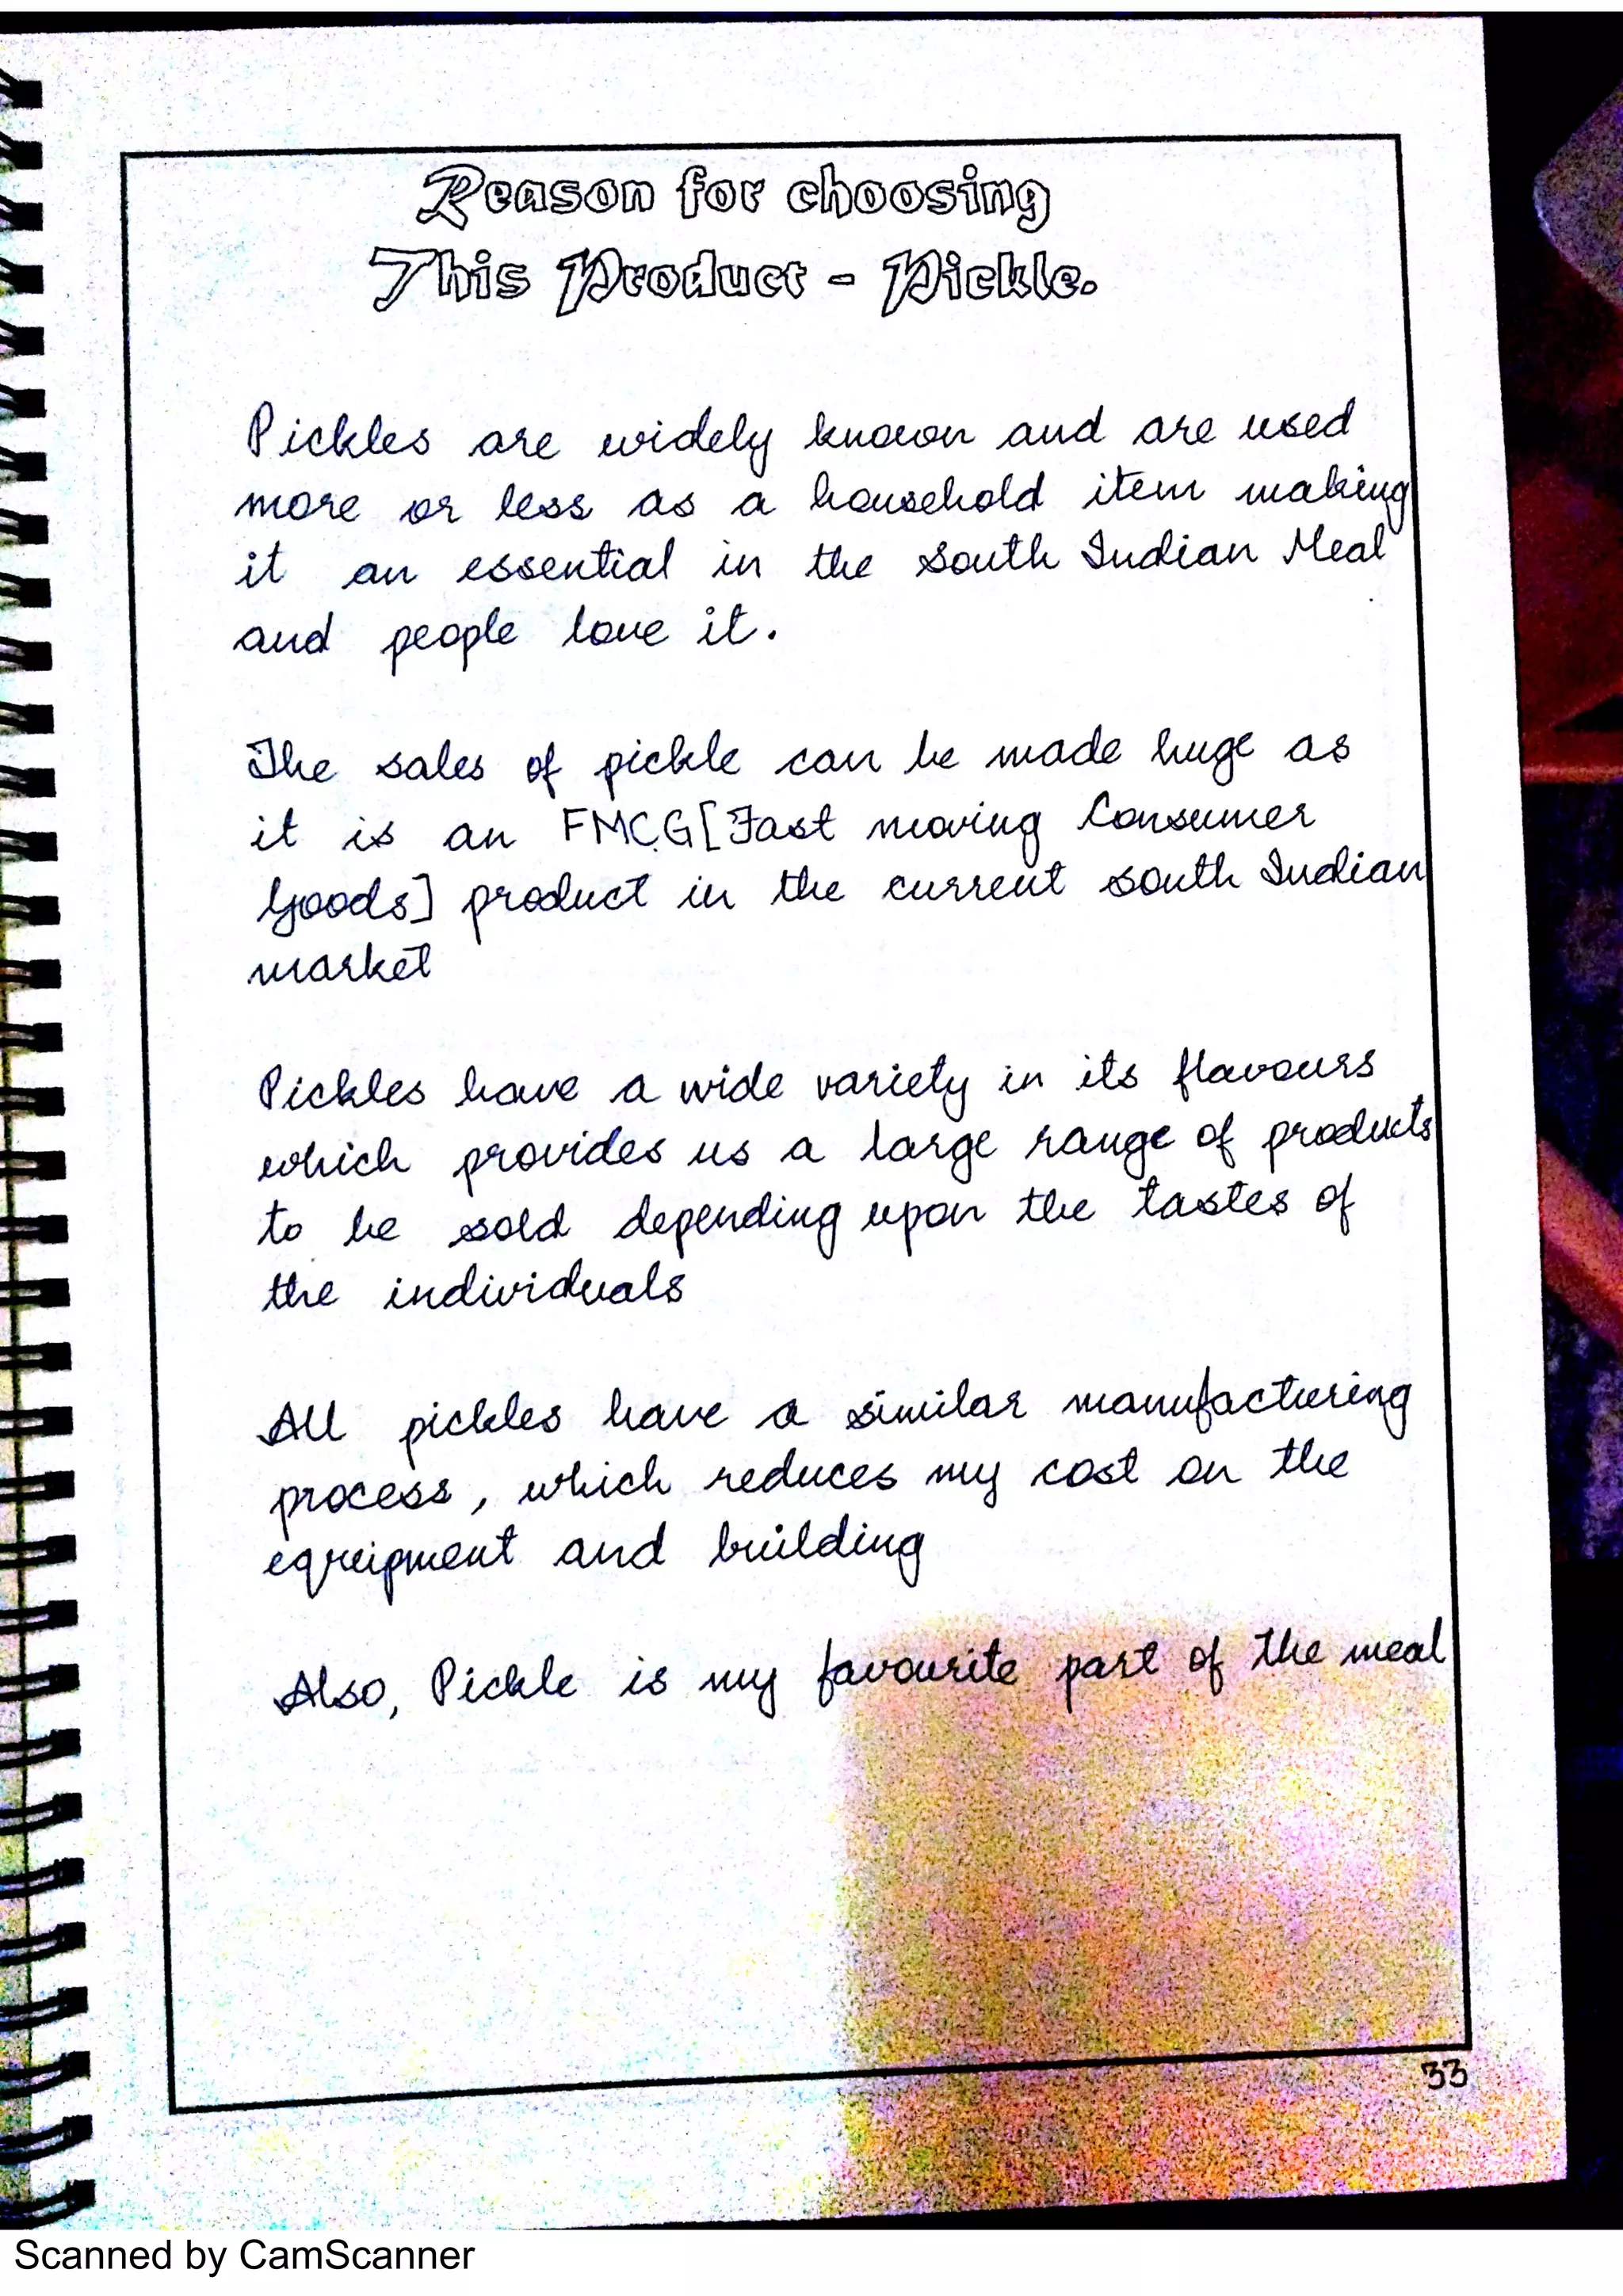 Reason for choosing
This Product - Pickle.
Pickles are widely known and are used
more or less as a household item making
it an essential in the South Indian Meal
and people love it.
The sales of pickle can be made huge as
it is an FMCG [Fast moving Consumer
Goods] product in the current south Indian
market
Pickles have a wide variety in its flavours
which provides us a large range of products
to be sold depending upon the tastes of
the individuals
All pickles have a similar manufacturing
process, which reduces my cost on the
equipment and building
Also, Pickle is my favourite part of the meal
33
Scanned by CamScanner